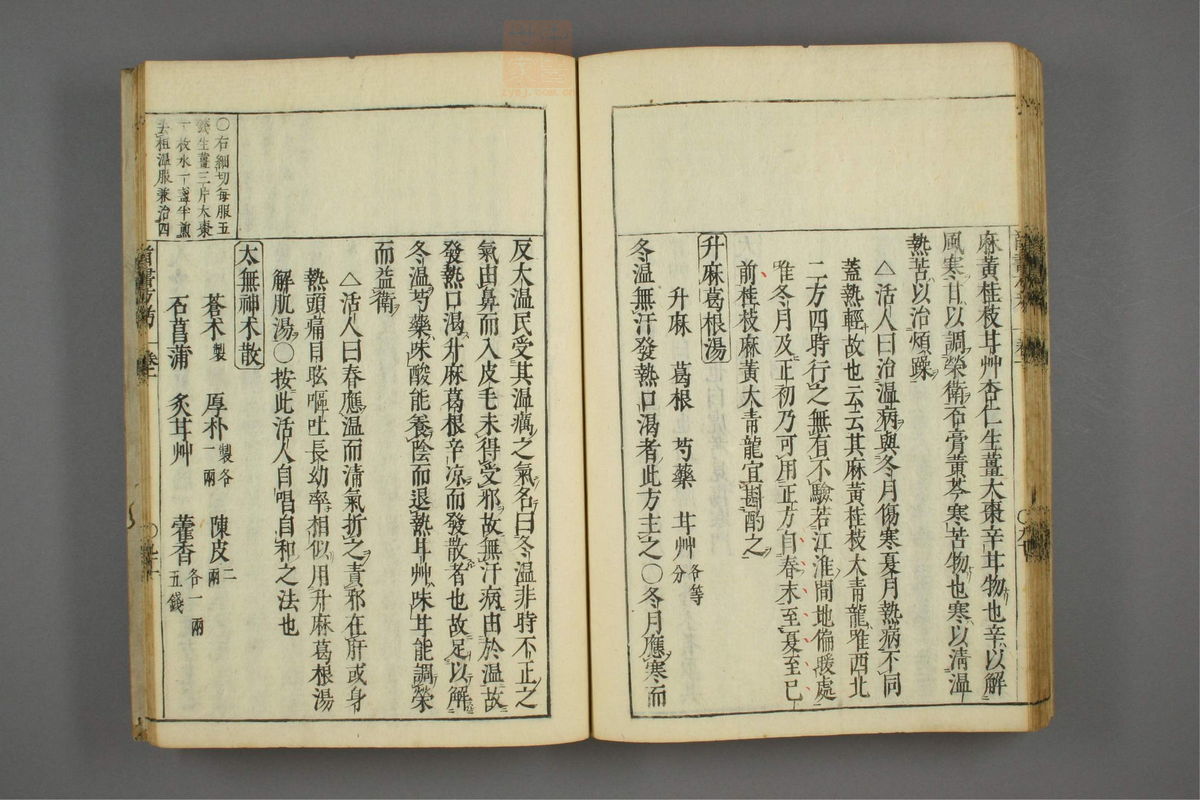 麻黃桂枝甘艸杏仁生薑大棗辛甘物也辛以解
風寒甘以調榮衛石膏黃芩寒苦物也寒以清溫
熱苦以治煩躁
△活人曰治溫病與冬月傷寒夏月熱病不同
蓋熱輕故也云云其麻黃桂枝大青龍唯西北
二方四時行之無有不驗若江淮間地偏暖處
唯冬月及正初乃可用正方自春末至夏至已
前桂枝麻黃大青龍宜斟酌之
升麻葛根湯
升麻 葛根 芍藥 甘艸各等分
冬溫無汗發熱口渴者此方主之〇冬月應寒而
反大溫民受其溫癘之氣名曰冬溫非時不正之
氣由鼻而入皮毛未得受邪故無汗病由於溫故
發熱口渴升麻葛根辛涼而發散者也故足以解
冬溫芍藥味酸能養陰而退熱甘艸味甘能調榮
而益衛
△活人曰春應溫而清氣折之責邪在肝或身
熱頭痛目眩嘔吐長幼率相似用升麻葛根湯
解肌湯〇按此活人自唱自和之法也
太無神朮散
蒼朮製 厚朴製各一兩 陳皮二兩
石菖蒲 炙甘艸 藿香各一兩五錢
〇右細切每服五
錢生薑三片大棗
一枚水一盞半煎
去柤溫服兼治四
卷一